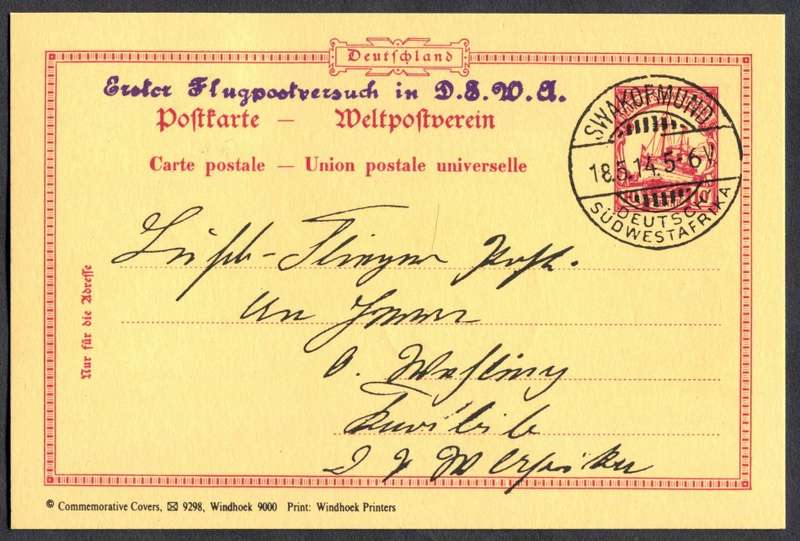 Deutschland
Erster Flugpostversuch in D.S.W.A.
Postkarte — Weltpostverein
Carte postale — Union postale universelle
SWAKOPMUND
18.5.14. 5-6 V
DEUTSCH-
SÜDWESTAFRIKA
10
Nur für die Adresse
Post.
An Herrn
O.
D S W Afrika
© Commemorative Covers, ✉ 9298, Windhoek 9000 Print: Windhoek Printers